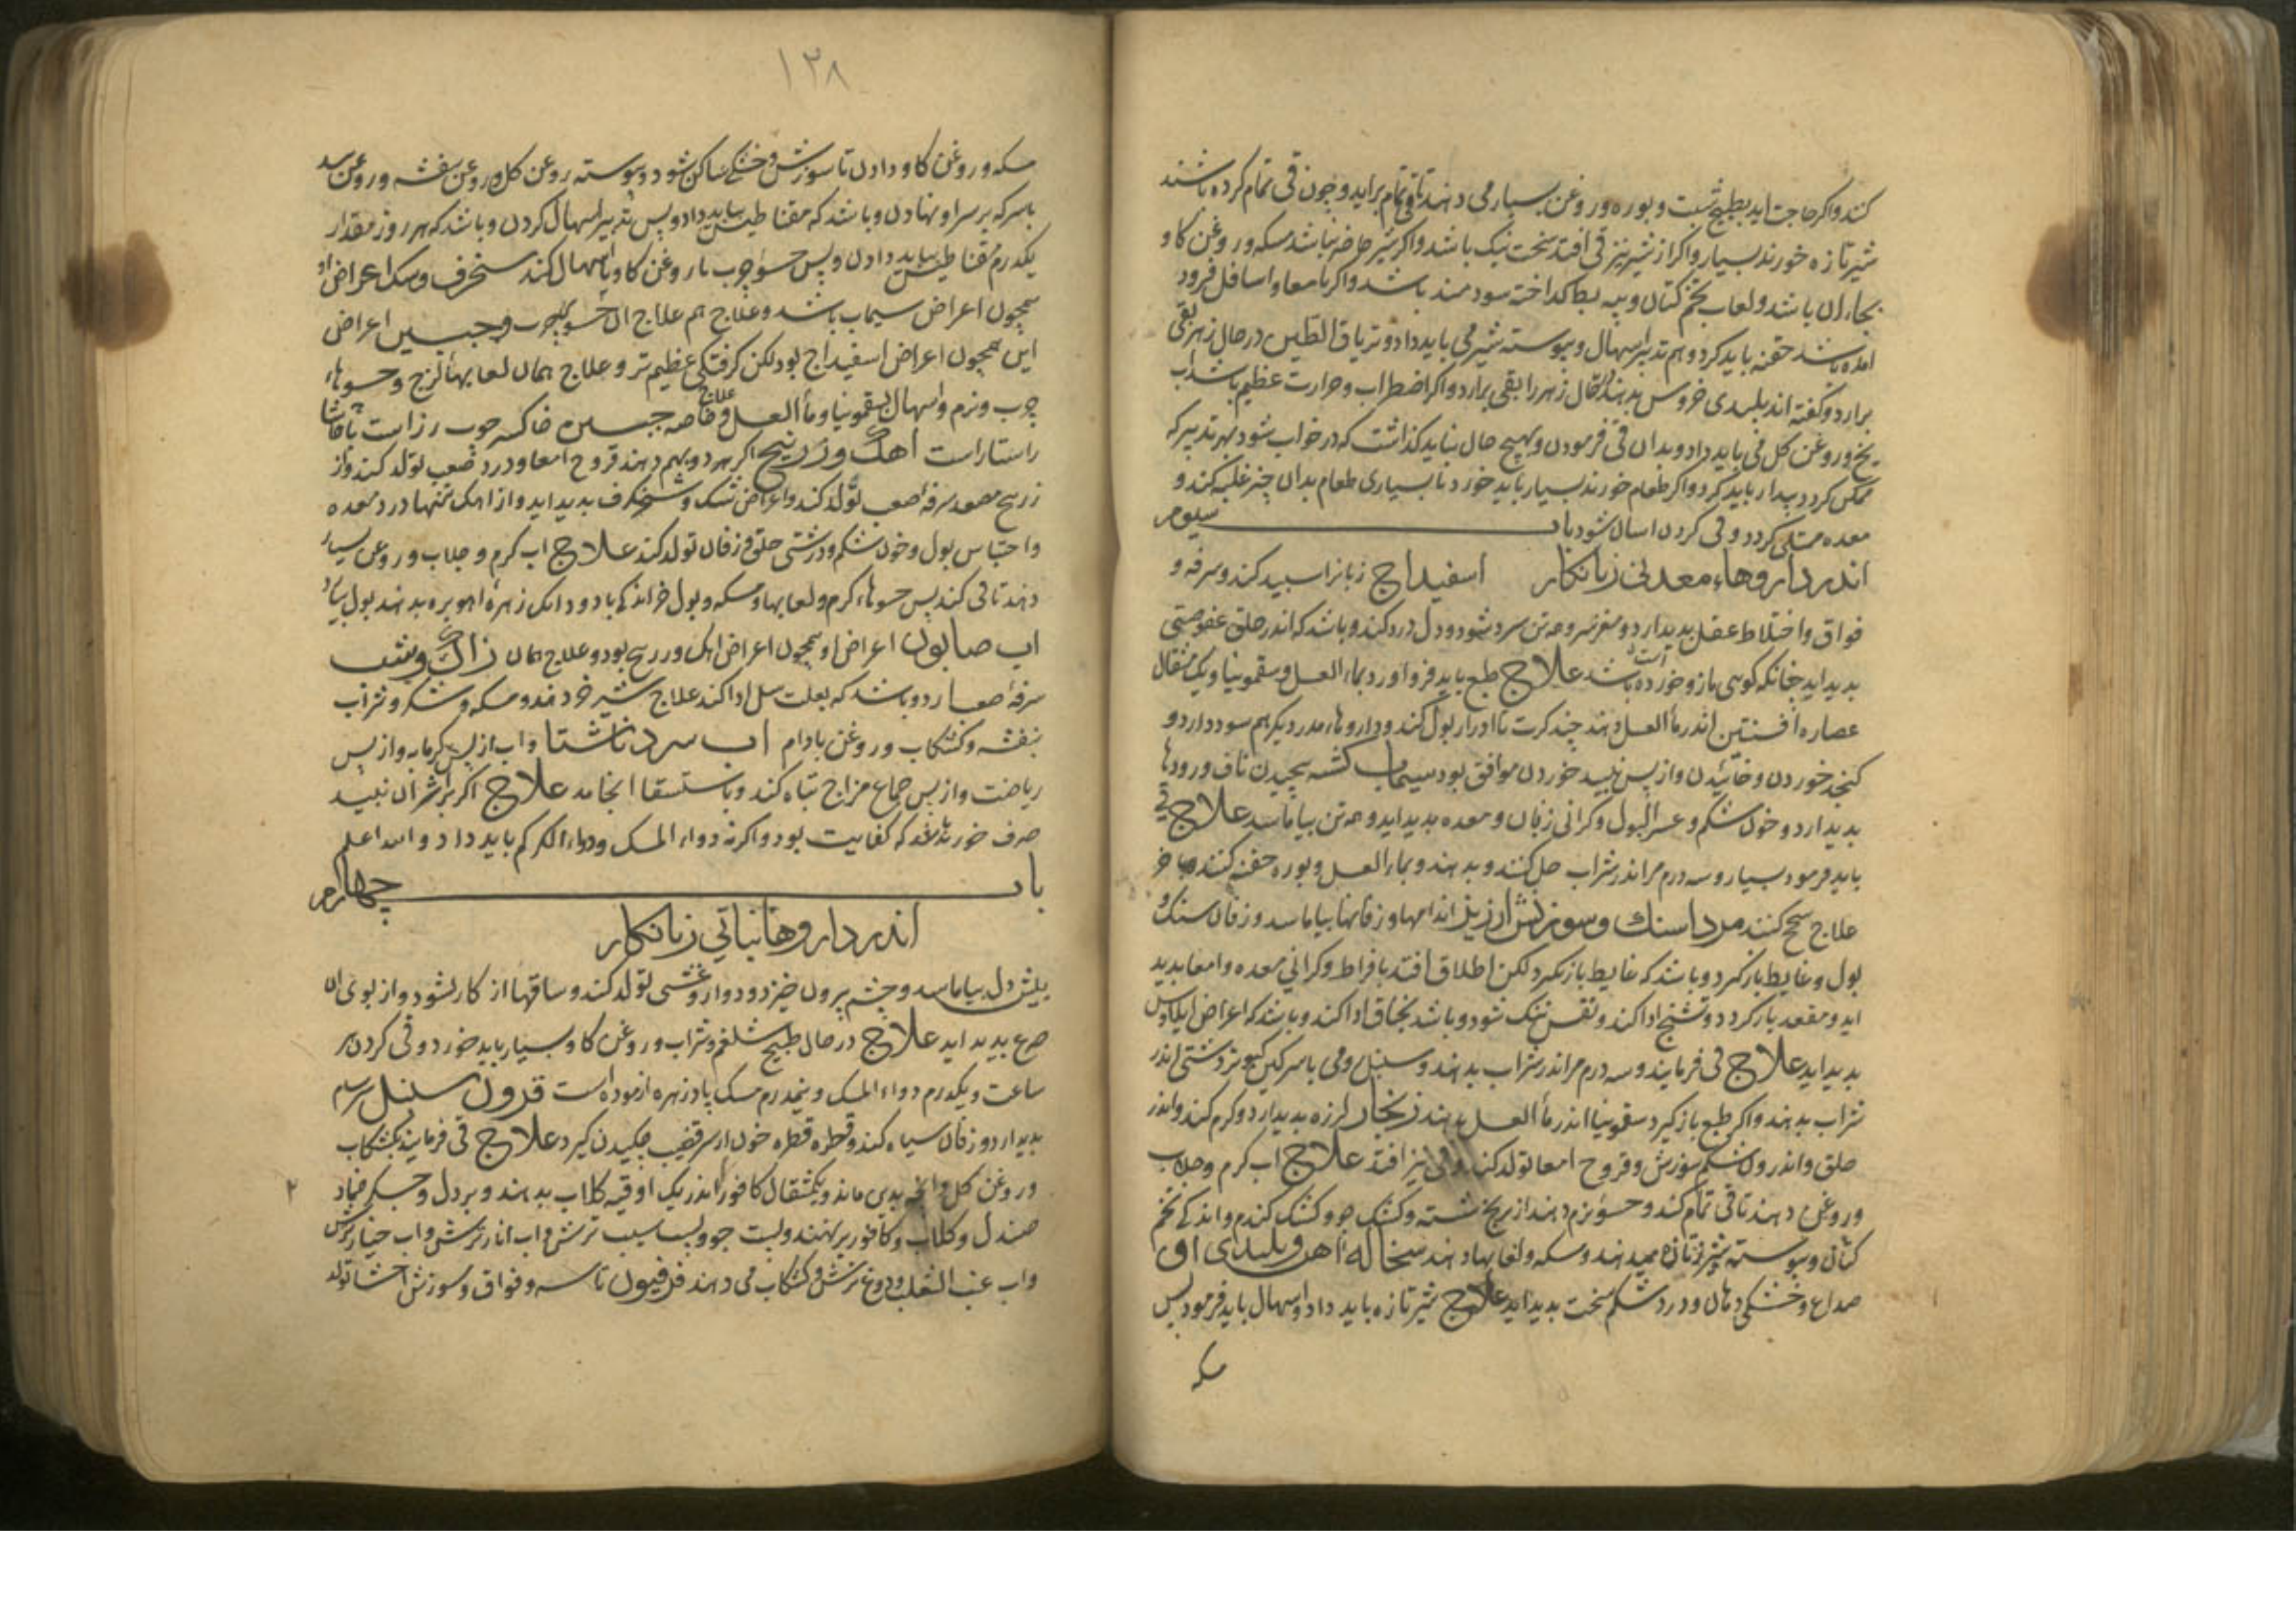 کنند و اکر حاجت اید بطبیخ شبت و بوره و روغن بسیار می دهند تا قی تمام براید و چون قی تمام کرده باشند
شیر تازه خورند بسیار و اکر از شیر نیز قی افتد سخت نیک باشد و اکر شیر حاضر نباشد مسکه و روغن کاو
بجای ان باشد و لعاب تخم کتان و پیه بط کداخته سودمند باشد و اکر بامعا و اسافل فرود
امده باشد حقنه باید کرد و هم تدبیر اسهال و پیوسته شیر می باید داد و تریاق الطین در حال زهر بقی
برارد و کفته اند پلیدی خروس بدهند در حال زهر را بقی برارد و اکر اضطراب و حرارت عظیم باشد اب
یخ و روغن کل می باید داد و بدان قی فرمودن و بهیچ حال نباید کذاشت که در خواب شود بهر تدبیر که
ممکن کردد بیدار باید کرد و اکر طعام خورند بسیار باید خورد تا بسیاری طعام بدان چیز غلبه کند و
معده ممتلی کردد و قی کردن اسان شود باب سیوم
اندر داروهاء معدنی زیانکار اسفیداج زبانرا سپید کند و سرفه و
فواق و اختلاط عقل پدید ارد و مغز سر و همه تن سرد شود و دل درد کند و باشد که اندر حلق عفوصتی
پدید اید چنانکه کویی مازو خورده است علاج طبع باید فرو اورد بماء العسل و سقمونیا و یک مثقال
عصاره افسنتین اندر ماء العسل دهند چند کرت تا ادرار بول کند و داروهاء مدر دیکر هم سود دارد و
کنجد خوردن و خائیدن و از پس نبید خوردن موافق بود سیماب کشته پیچیدن ناف و رودها
پدید ارد و خون شکم و عسر البول و کرانی زفان و معده پدید اید و همه تن بیاماسد علاج قی
باید فرمود بسیار و سه درم مر اندر شراب حل کنند و بدهند و بماء العسل و بوره حقنه کنند
علاج سحج کنند مرداسنك و سوزش ارزیز اندامها و زفانها بیاماسد و زفان سنک و
بول و غایط باز کیرد و باشد که غایط باز نکیرد لکن اطلاق افتد بافراط و کرانی معده و امعا پدید
اید و مقعد باز کردد و تشنج ادا کند و نفس تنک شود و باشد بخناق ادا کند و باشد که اعراض ایلاوس
پدید اید علاج قی فرمایند و سه درم مر اندر شراب بدهند و سنبل رومی با سرکین کبوتر دشتی اندر
شراب بدهند و اکر طبع باز کیرد سقمونیا اندر ماء العسل بدهند زنجار لرزه پدید ارد و کرم کند و اندر
حلق و اندرون شکم سوزش و قروح امعا تولد کند و قی نیز افتد علاج اب کرم و جلاب
و روغن دهند تا قی تمام کند و حسو نرم دهند از برنج شسته و کشک جو و کشک کندم و اندکی تخم
کتان و پیوسته شیر تازه میدهند و مسکه و لعابها دهند سخاله اهن و پلیدی او
صداع و خشکی دهان و درد شکم سخت پدید اید علاج شیر تازه باید داد و اسهال باید فرمود پس
مسکه
۱۳۸
مسکه و روغن کاو دادن تا سوزش و خشکی ساکن شود و پیوسته روغن کل و روغن بنفشه و روغن بید
با سرکه بر سر او نهادن و باشد که مقناطیس بباید داد و پس تدبیر اسهال کردن و باشد که هر روز مقدار
یکدرم مقناطیس بباید دادن و پس حسو چرب با روغن کاو و با اسهال کند سنجرف و سک اعراض او
همچون اعراض سیماب باشد و علاج هم علاج ان حسوهاء چرب و جبسین اعراض
این همچون اعراض اسفیداج بود لکن کرفتکی عظیم تر و علاج همان لعابهاء لزج و حسوهاء
چرب و نرم و اسهال بسقمونیا و ماء العسل و خاصه علاج جبسین خاکستر چوب رز است
راستا راست اهك و زرنیخ اکر هر دو بهم دهند قروح امعا و درد صعب تولد کند و از
زرنیخ مصعد سرفه صعب تولد کند و اعراض شک و شنجرف پدید اید و از اهک تنها درد معده
و احتباس بول و خون شکم و درشتی حلق و زفان تولد کند علاج اب کرم و جلاب و روغن بسیار
دهند تا قی کند پس حسوهاء کرم و لعابها و مسکه و بول خر اندکی با دو دانک زهره اهو بره بدهند بول بیارد
اب صابون اعراض او همچون اعراض اهک و زرنیخ بود و علاج همان زاك و شب
سرفه صعب ارد و باشد که بعلت سل ادا کند علاج شیر خر دهند و مسکه و شکر و شراب
بنفشه و کشکاب و روغن بادام اب سرد ناشتا و اب از پس کرمابه و از پس
ریاضت و از پس جماع مزاج تباه کند و باستسقا انجامد علاج اکر بر اثر ان نبید
صرف خورند بقد که کفایت بود و اکر نه دواء المسک و دواء الکرکم باید داد و الله اعلم
باب چهارم
اندر داروهاء نباتی زیانکار
بیش دل بیاماسد و چشم بیرون خیزد و دوار و غشی تولد کند و ساقها از کار بشود و از بوی ان
صرع پدید اید علاج در حال طبیخ شلغم و شراب و روغن کاو بسیار باید خورد و قی کردن هر
ساعت و یکدرم دواء المسک و نیمدرم مسک پادزهره ازموده است قرون سنبل سرسام
پدید ارد و زفان سیاه کند و قطره قطره خون از سر قضیب چکیدن کیرد علاج قی فرمایند بکشکاب
و روغن کل و انچه بدی ماند و یکمثقال کافور اندر یک اوقیه کلاب بدهند و بر دل و جکر ضماد
صندل و کلاب و کافور بر نهند و پست جو و پست سیب ترش و اب انار ترش و اب خیار ترش
و اب عنب الثعلب و دوغ ترش و کشکاب می دهند فرفیون تاسه و فواق و سوزش احشا تولد
۲